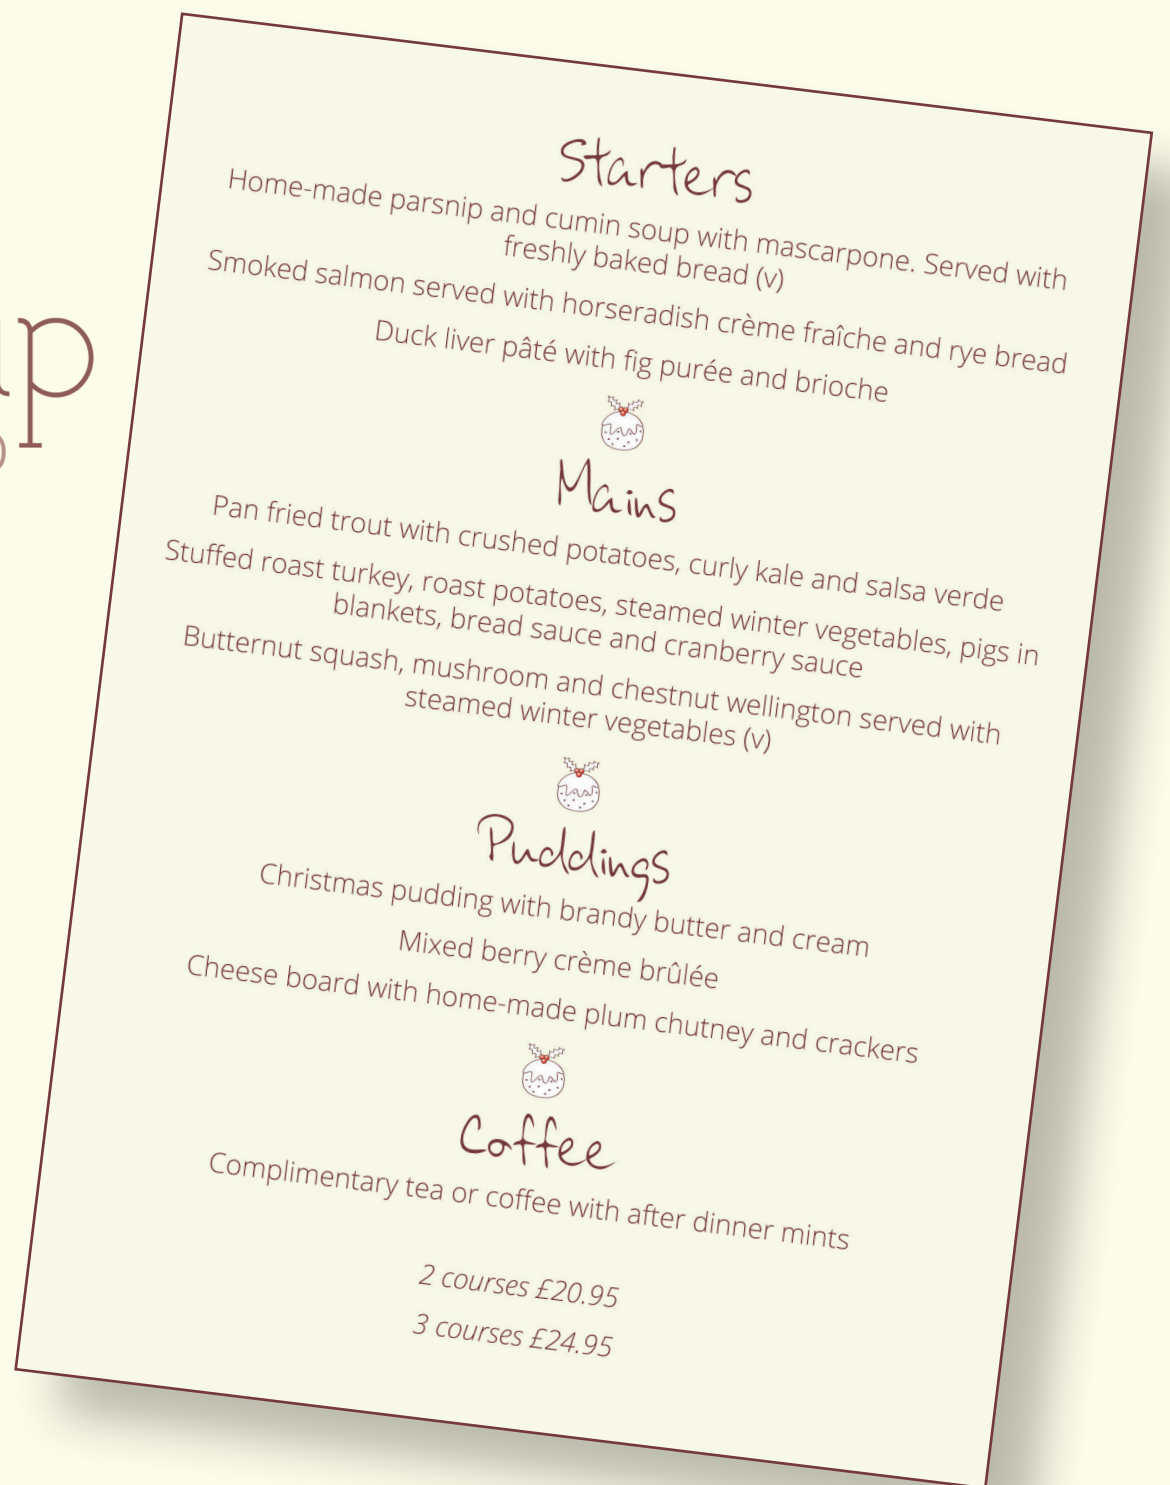 Starters
Home-made parsnip and cumin soup with mascarpone. Served with
freshly baked bread (v)
Smoked salmon served with horseradish crème fraîche and rye bread
Duck liver pâté with fig purée and brioche
Mains
Pan fried trout with crushed potatoes, curly kale and salsa verde
Stuffed roast turkey, roast potatoes, steamed winter vegetables, pigs in
blankets, bread sauce and cranberry sauce
Butternut squash, mushroom and chestnut wellington served with
steamed winter vegetables (v)
Puddings
Christmas pudding with brandy butter and cream
Mixed berry crème brûlée
Cheese board with home-made plum chutney and crackers
Coffee
Complimentary tea or coffee with after dinner mints
2 courses £20.95
3 courses £24.95